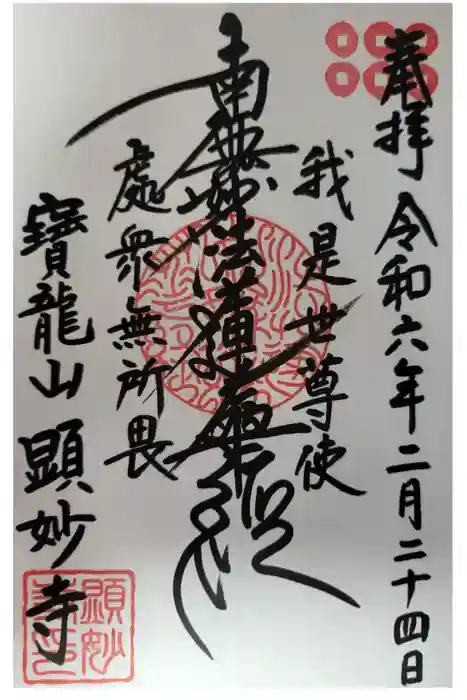 奉拝 令和六年二月二十四日
我是世尊使
南無妙法蓮華経
處衆無所畏
寶龍山 顕妙寺
顕妙